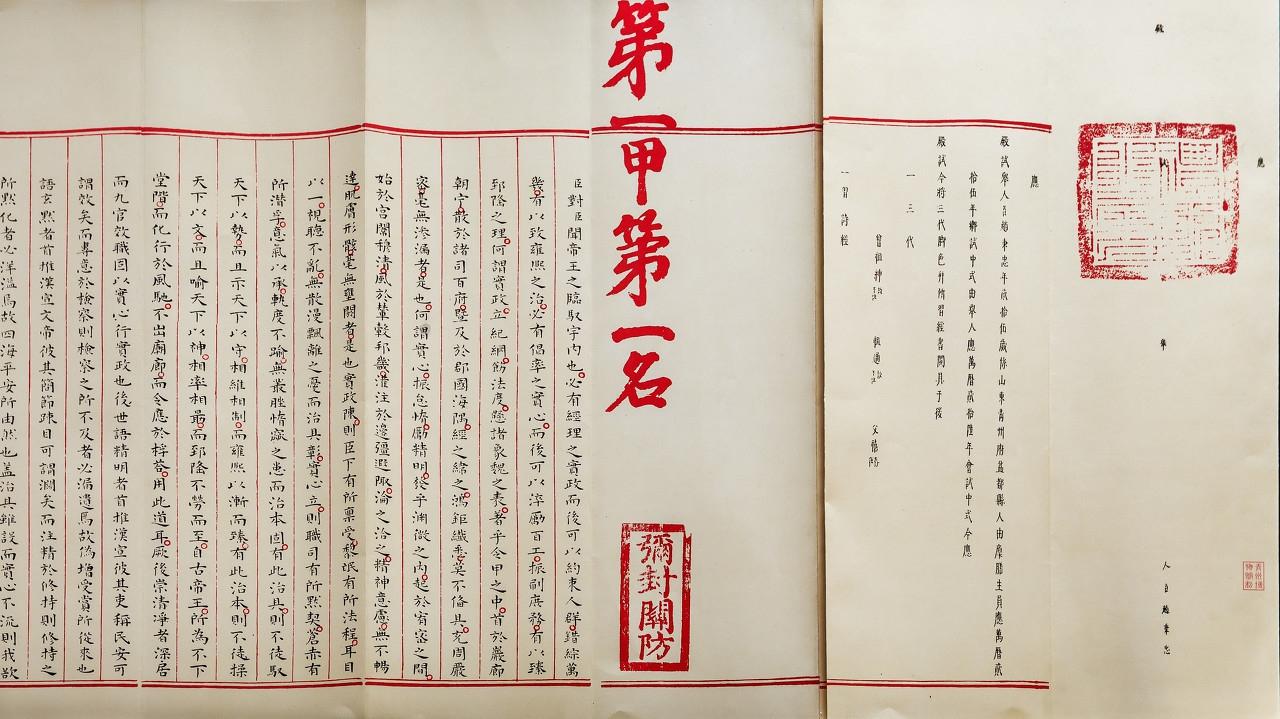 應
殿試舉人臣趙秉忠
應
殿試舉人臣趙秉忠年貳拾伍歲係山東青州府益都縣人由廩膳生員應萬曆貳
拾伍年鄉試中式由舉人應萬曆貳拾陸年會試中式今應
殿試今將三代脚色并所習經書開具于後
一三代
曾祖 祖 父僖
一習詩經
第一甲第一名
彌封關防
臣對臣聞帝王之臨馭宇內也必有經理之實政而後可以約束人群錯綜萬
幾有以致雍熙之治必有倡率之實心而後可以淳勵百工振刷庶務有以臻
郅隆之理何謂實政立紀綱飭法度懸諸象魏之表著乎令甲之中首於巖廊
朝宁散於諸司百府暨及於郡國海隅經之緯之鴻鉅纖悉莫不備具充周嚴
密毫無滲漏者是也何謂實心振怠惰勵精明發乎淵微之內起於宥密之間
始於宮闈穆清風於輦轂邦畿灌注於邊疆遐陬淪之洽之精神意慮無不暢
達肌膚形骸毫無壅閼者是也實政陳則臣下有所稟受黎氓有所法程耳目
以一視聽不亂無散漫飄離之憂而治具彰實心立則職司有所默契蒼赤有
所潛孚意氣以承軌度不踰無叢脞惰窳之患而治本固有此治具則不徒馭
天下以勢而且示天下以守相維相制而雍熙以漸而臻有此治本則不徒操
天下以文而且喻天下以神相率相最而郅隆不勞而至自古帝王所為不下
堂階而化行於風馳不出廟廊而令應於桴荅用此道耳厥後崇清淨者深居
而九官效職固以實心行實政也後世語精明者首推漢宣彼其吏稱民安可
謂效矣而專意於檢察則檢察之所不及者必漏遺焉故偽增受賞所從來也
語玄默者首推漢宣文帝彼其簡節疎目可謂濶矣而注精於修持則修持之
所默化者必洋溢焉故四海平安所由然也蓋治具雖設而實心不流則我欲